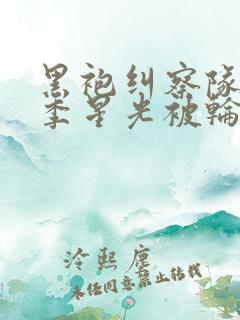 黑袍纠察队
李星光被輪
泠熙塵
未经同意禁止转载